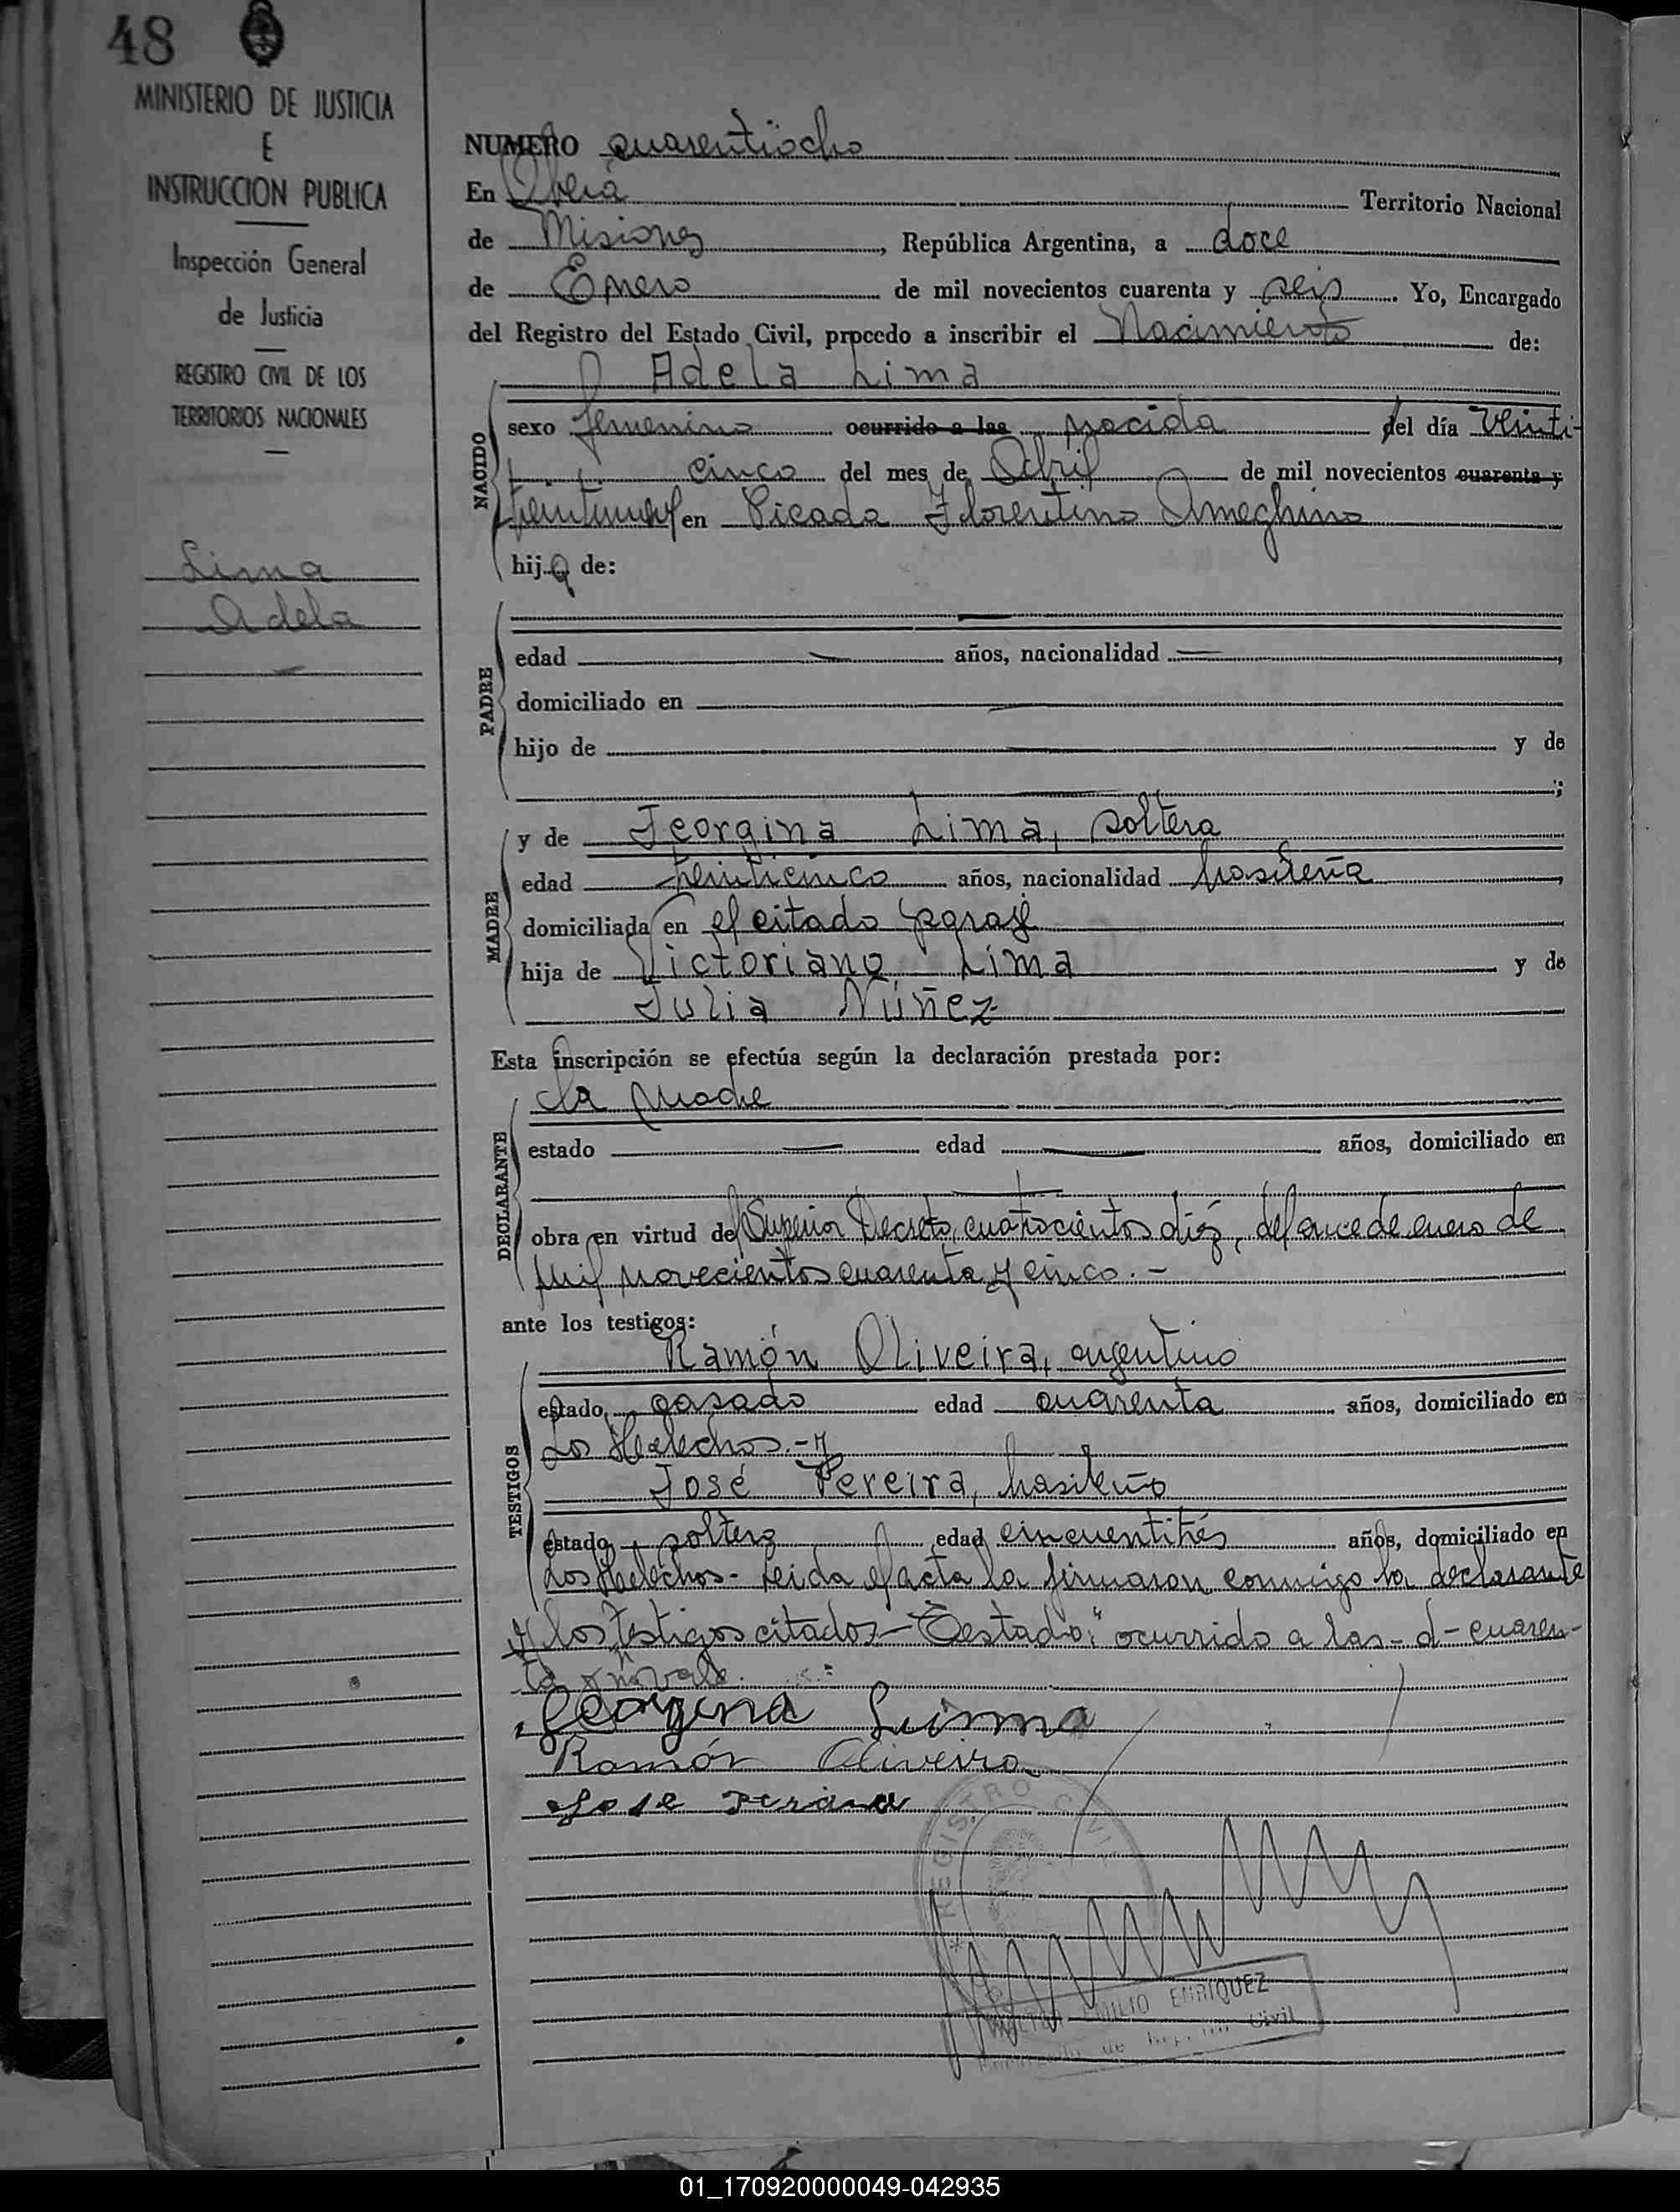 48
MINISTERIO DE JUSTICIA
E
INSTRUCCION PUBLICA
Inspección General
de Justicia
REGISTRO CIVIL DE LOS
TERRITORIOS NACIONALES
Lima
Adela
NUMERO cuarentiocho
En Oberá Territorio Nacional
de Misiones, República Argentina, a doce
de Enero de mil novecientos cuarenta y seis. Yo, Encargado
del Registro del Estado Civil, procedo a inscribir el Nacimiento de:
Adela Lima
NACIDO
sexo femenino ocurrido a las nacida del día veinti-
cinco del mes de Abril de mil novecientos cuarenta y
en Picada Florentino Ameghino
hija de:
PADRE
edad años, nacionalidad
domiciliado en
hijo de y de
;
MADRE
y de Jeorgina Lima, soltera
edad treinticinco años, nacionalidad brasileña
domiciliada en el citado paraje
hija de Victoriano Lima y de
Julia Núñez
Esta inscripción se efectúa según la declaración prestada por:
DECLARANTE
la madre
estado edad años, domiciliado en
obra en virtud del Superior Decreto, cuatrocientos diez, del once de enero de
mil novecientos cuarenta y cinco.-
ante los testigos:
TESTIGOS
Ramón Oliveira, argentino
estado casado edad cuarenta años, domiciliado en
Los Helechos.- y
José Pereira, brasileño
estado soltero edad cincuentitrés años, domiciliado en
Los Helechos- Leida el acta la firmaron conmigo la declarante
y los testigos citados- Testado: "ocurrido a las- d- cuaren-
ta y no vale.
Georgina Lima
Ramón Oliveira
Jose
REGISTRO CIVIL
EMILIO ENRIQUEZ
Civil
01_170920000049-042935